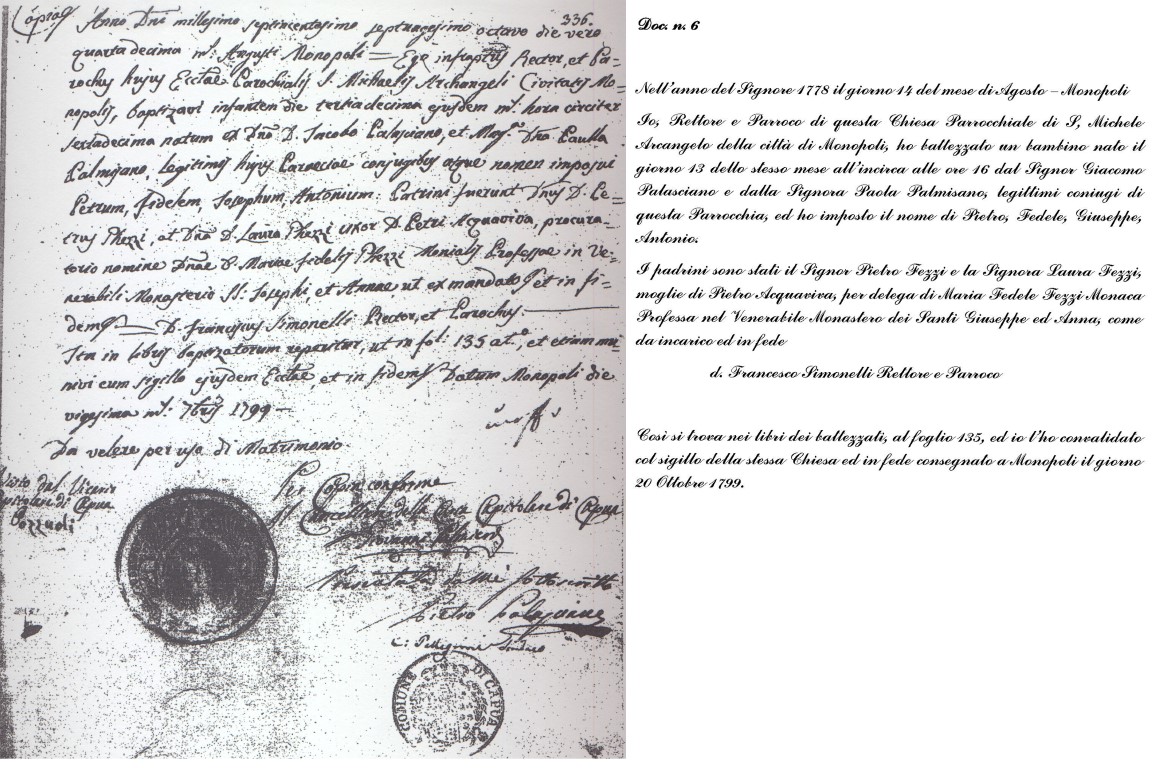 Copia
336.
Anno Dni millesimo septincentesimo septuagesimo octavo die vero
quarta decima m: Augusti Monopoli = Ego infraptus Rector, et Pa=
rochus hujus Ecctae Parochialis S. Michaelis Archangeli Civitatis Mo=
nopolis, baptizavi infantem die tertia decima ejusdem m: hora circiter
sextadecima natum ex Dno D. Jacobo Palasciano, et Dna Paulla
Palmisano, legitimis hujus Paraeciae conjugibus atque nomen imposui
Petrum, fidelem, Josephum, Antonium. Patrini fuerunt Dnus D. Pe=
trus Phezzi, et Dna D. Laura Phezzi uxor D. Petri Acquaviva, procura=
torio nomine Dnae D. Mariae fidelis Phezzi Monialis Professae in Ve=
nerabili Monasterio SS. Josephi et Annae ut ex mandato et in fi=
dem D. franciscus Simonelli Rector, et Parochus.
Ita in libris baptizatorum reperitur, ut in fol: 135 at., et etiam mu
nivi cum sigillo ejusdem Ecctae, et in fidem Datum Monopoli die
vigesima m: 7bris 1799 —
Da valere per uso di Matrimonio
Visto dal Vicario
Capitolare di Capua
Bozzuoli
Per Copia conforme
Il Cancelliere della Curia Capitolare di Capua
Presentata da me sottoscritto
Pietro Palasciano
C: Pellegrino Sindaco
COMUNE DI CAPUA
Doc. n. 6
Nell'anno del Signore 1778 il giorno 14 del mese di Agosto – Monopoli
Io, Rettore e Parroco di questa Chiesa Parrocchiale di S, Michele
Arcangelo della città di Monopoli, ho battezzato un bambino nato il
giorno 13 dello stesso mese all'incirca alle ore 16 dal Signor Giacomo
Palasciano e dalla Signora Paola Palmisano, legittimi coniugi di
questa Parrocchia, ed ho imposto il nome di Pietro, Fedele, Giuseppe,
Antonio.
I padrini sono stati il Signor Pietro Fezzi e la Signora Laura Fezzi,
moglie di Pietro Acquaviva, per delega di Maria Fedele Fezzi Monaca
Professa nel Venerabile Monastero dei Santi Giuseppe ed Anna, come
da incarico ed in fede
d. Francesco Simonelli Rettore e Parroco
Così si trova nei libri dei battezzati, al foglio 135, ed io l'ho convalidato
col sigillo della stessa Chiesa ed in fede consegnato a Monopoli il giorno
20 Ottobre 1799.